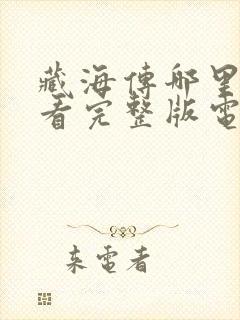 藏海傳哪里
看完整版電
来電看